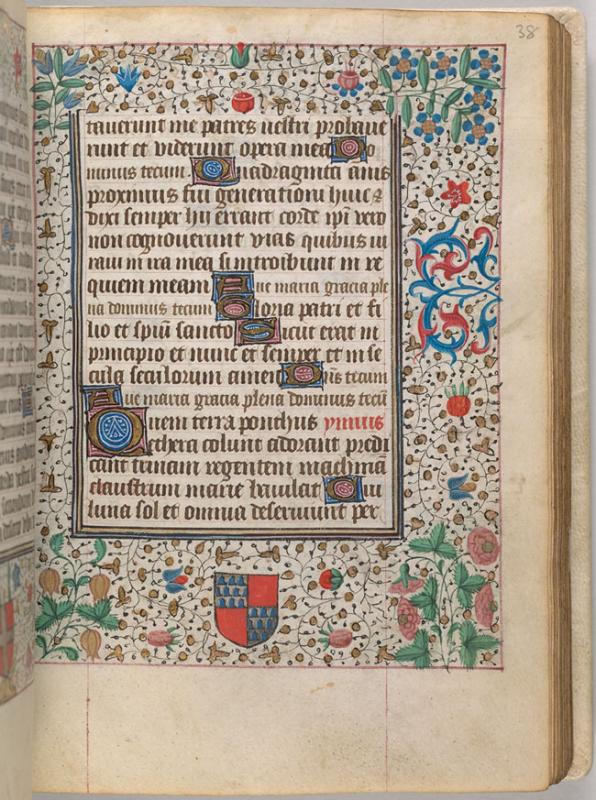 38
tauerunt me patres uestri probaue
runt et viderunt opera mea Do
minus tecum. Quadraginta anis
proximus fui generationi huic &
dixi semper hij errant corde ipi vero
non cognouerunt vias quibus iu
raui in ira mea si introibunt in re
quiem meam Aue maria gracia ple
na dominus tecum Gloria patri et fi
lio et spiu sancto Sicut erat in
principio et nunc et semper et in se
cula seculorum amen Dns tecum
Aue maria gracia plena dominus tecu
Quem terra ponthus ymnus
ethera colunt adorant predi
cant trinam regentem machina
claustrum marie baiulat Cui
luna sol et omnia deseruiunt per